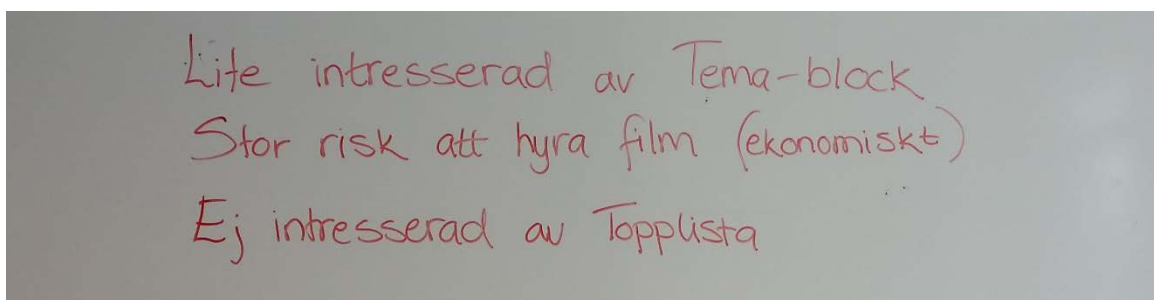 Lite intresserad av Tema-block
Stor risk att hyra film (ekonomiskt)
Ej intresserad av Topplista